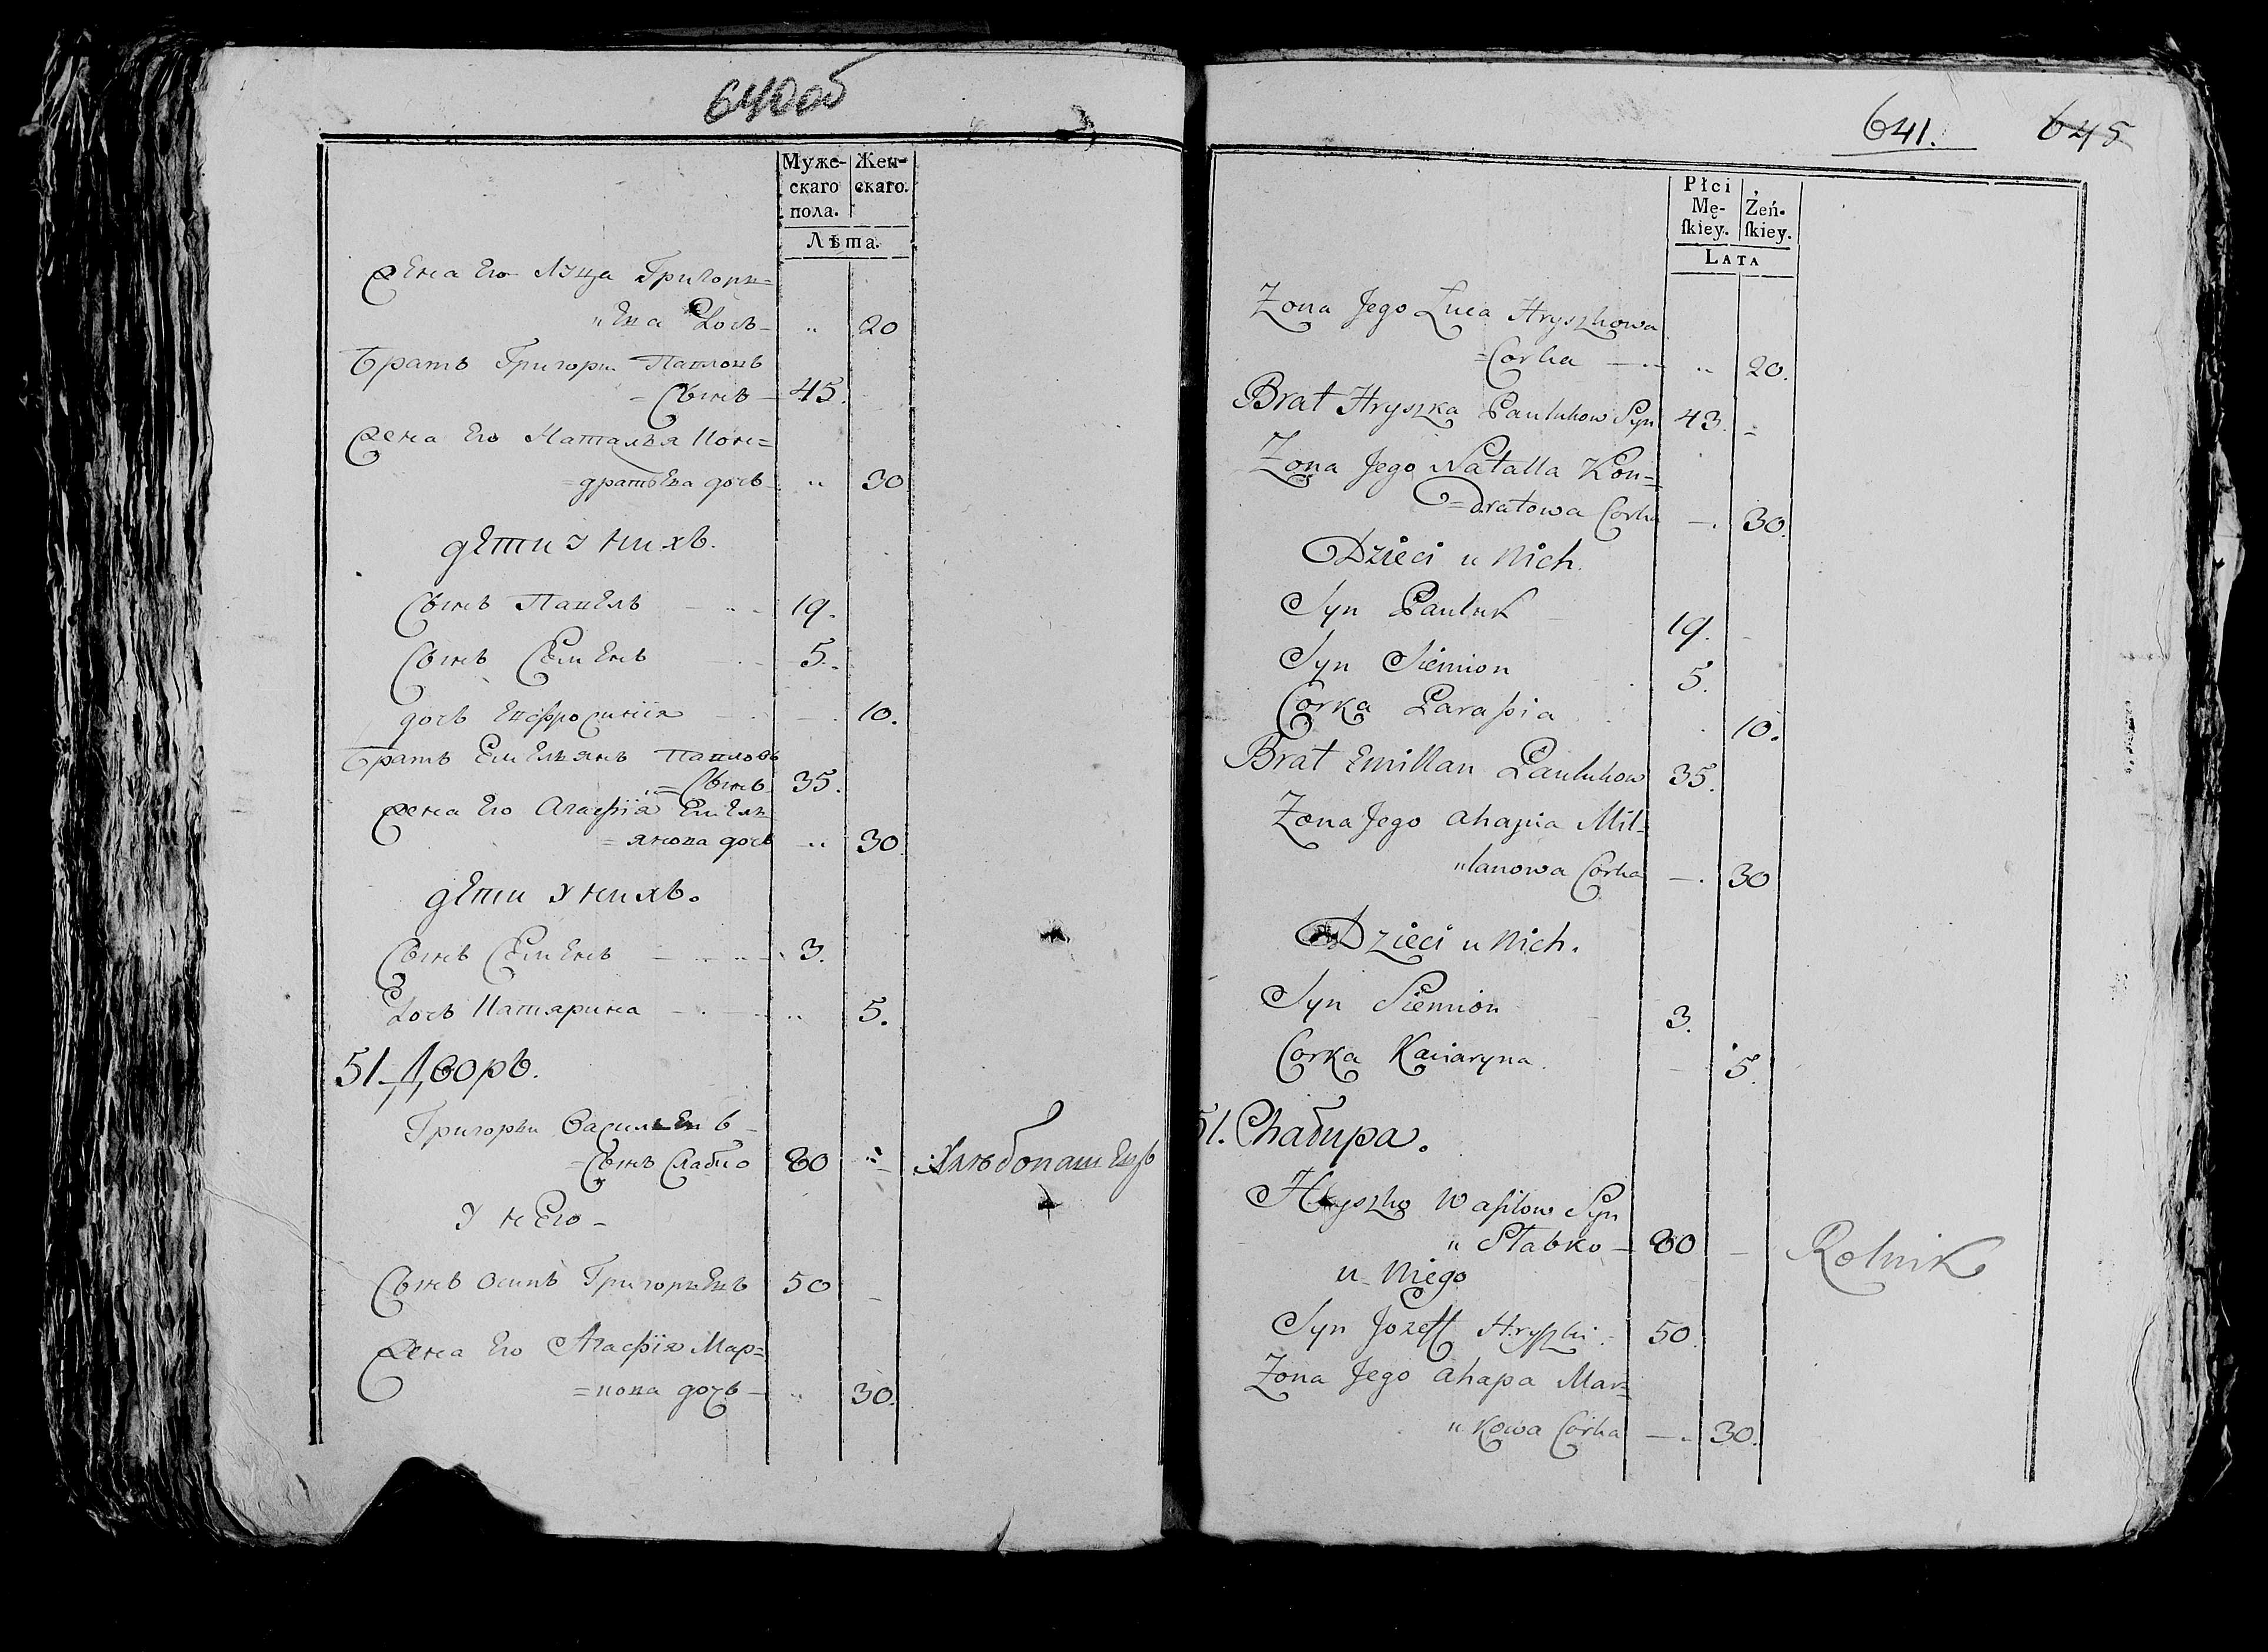 640об
Муже-
скаго
пола.
Жен-
скаго.
Лѣта.
Жена Его Луца Григорь=
"Ева Дочь - " 20
Братъ Григори Павловъ
=Сынъ - 45.
Жена Его Наталья Кон=
=дратьева дочь - " 30
дети У нихъ.
Сынъ Павелъ - 19.
Сынъ Семенъ - 5.
дочь Евфросинія - 10.
Братъ Емельянъ Павловъ
=Сынъ 35.
Жена Его Агафія Емель
=янова дочь " 30
дети У нихъ.
Сынъ Семенъ - 3.
Дочь Катярина - " 5.
51 Дворъ.
Григорьи Васильевъ -
=Сынъ Слабко 80 " Хлѣбопашецъ
У него -
Сынъ Осипъ Григорьевъ 50 -
Жена Его Агафія Мар=
=кова дочь - " 30.
641. 645
Płci
Mę-
ſkiey.
Żeń-
ſkiey.
LATA
Zona Jego Łuca Hryszkowa
=Corka - " 20.
Brat Hryszka Paulukow Syn 43. =
Zona Jego Natalla Kon=
=dratowa Corka - 30.
Dzieci u Nich.
Syn Pauluk 19. -
Syn Siemion 5.
Corka Paraſia 10.
Brat Emillan Paulukow 35.
Zona Jego Ahapia Mil=
"lanowa Corka - 30
Dzieci u Nich.
Syn Siemion 3.
Corka Kaciaryna. 5.
51. Chaбира.
Hryszko Waſilow Syn
" Słabko - 80 - Rolnik
u Niego
Syn Jozeff Hryſzki - 50.
Zona Jego Ahapa Mar=
"kowa Corka - 30.